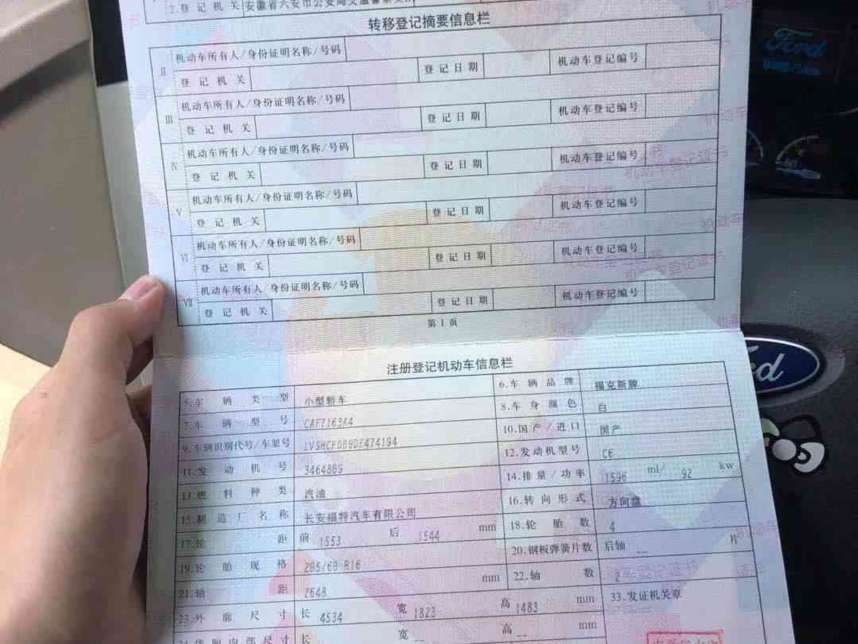 2.登记机关 安徽省六安市公安局交通警察支
转移登记摘要信息栏
II 机动车所有人/身份证明名称/号码
登记机关 登记日期 机动车登记编号
III 机动车所有人/身份证明名称/号码
登记机关 登记日期 机动车登记编号
IV 机动车所有人/身份证明名称/号码
登记机关 登记日期 机动车登记编号
V 机动车所有人/身份证明名称/号码
登记机关 登记日期 机动车登记编号
VI 机动车所有人/身份证明名称/号码
登记机关 登记日期 机动车登记编号
VII 机动车所有人/身份证明名称/号码
登记机关 登记日期 机动车登记编号
第1页
注册登记机动车信息栏
5.车辆类型 小型轿车 6.车辆品牌 福克斯牌
7.车辆型号 CAF7163A4 8.车身颜色 白
9.车辆识别代号/车架号 LVSHCFDB9DE474194 10.国产/进口 国产
11.发动机号 3464889 12.发动机型号 C6
13.燃料种类 汽油 14.排量/功率 1596 ml/ 92 kw
15.制造厂名称 长安福特汽车有限公司 16.转向形式 方向盘
17.轮距 前 1553 后 1544 mm 18.轮胎数 4
19.轮胎规格 205/60 R16 20.钢板弹簧片数 后轴 -- 片
21.轴距 2648 mm 22.轴数 2
23.外廓尺寸 长 4534 宽 1823 高 1483 mm 33.发证机关章
长 -- 宽 -- 高 -- mm
Ford
Ford